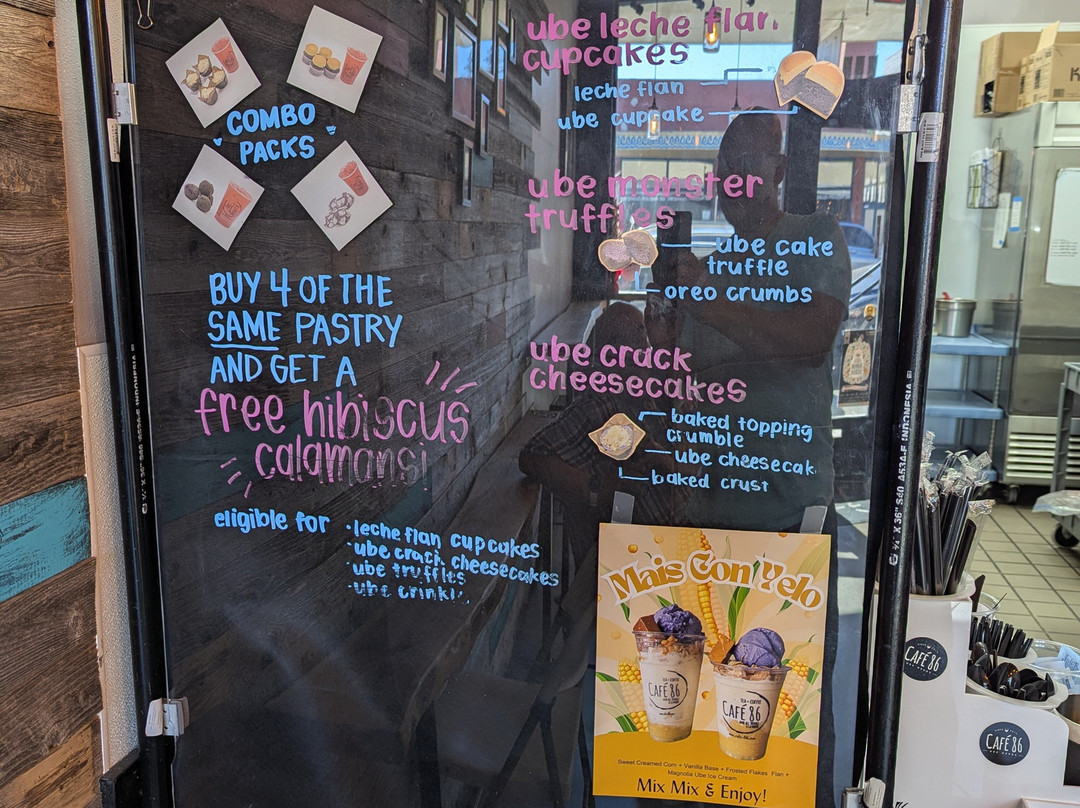 COMBO
PACKS
BUY 4 OF THE
SAME PASTRY
AND GET A
free hibiscus
calamansi
eligible for
• leche flan cupcakes
• ube crack cheesecakes
• ube truffles
ube leche flan
cupcakes
leche flan
ube cupcake
ube monster
truffles
ube cake
truffle
oreo crumbs
ube crack
cheesecakes
baked topping
crumble
ube cheesecak
baked crust
Mais Con Yelo
TEA + COFFEE
CAFÉ 86
TEA + COFFEE
CAFÉ 86
Sweet Creamed Corn + Vanilla Base + Frosted Flakes Flan +
Magnolia Ube Ice Cream
Mix Mix & Enjoy!
CAFÉ 86
CAFÉ 86
INDONESIA
¾" X 36" S40 A53A-F INDONESIA
K